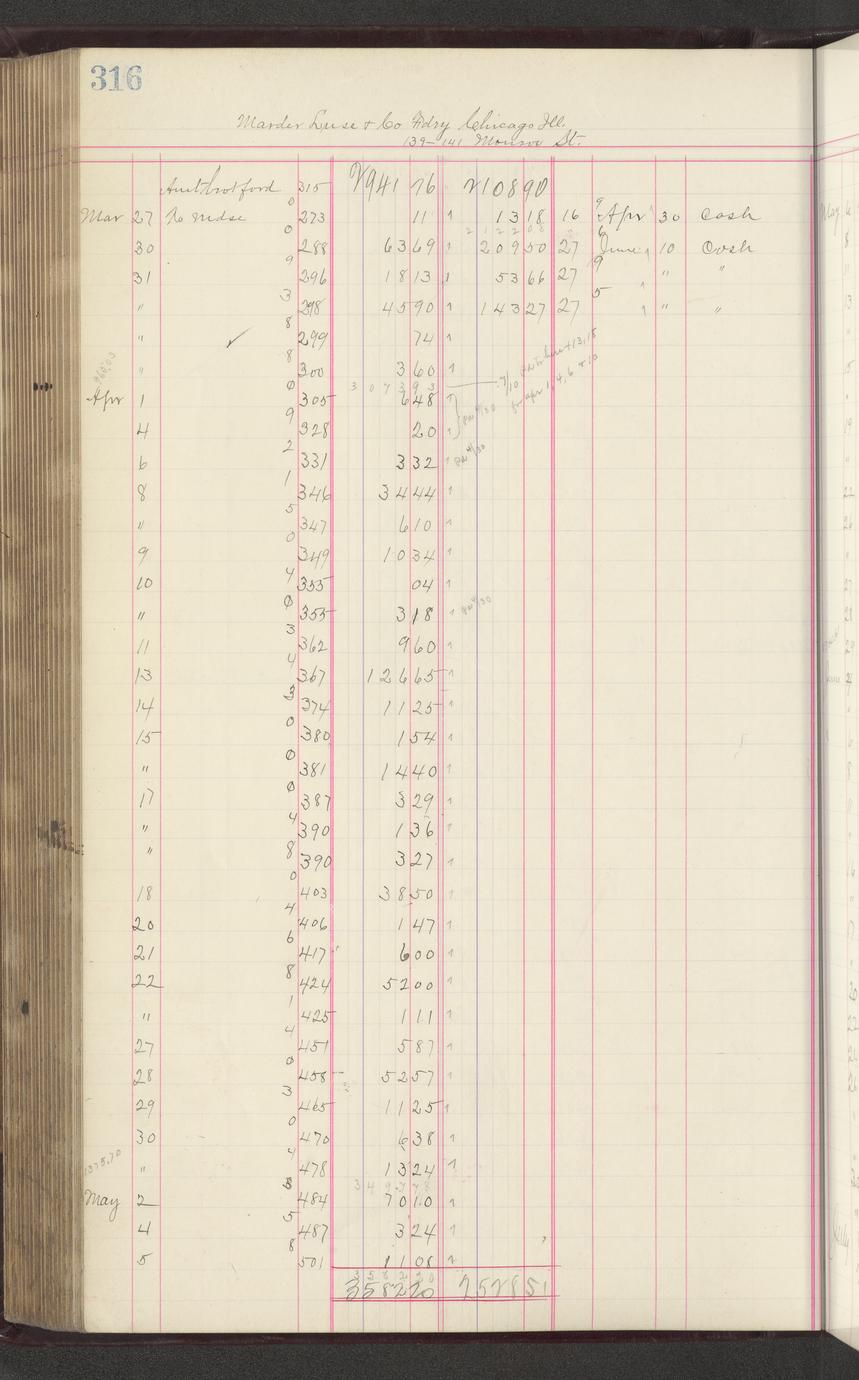 316
Marder Luse & Co Fdry Chicago Ill.
139-141 Monroe St.
Amt brot ford 315 2941 76 210890
Mar 27 To mdse 0 273 11 1 1318 16 9 Apr 30 Cash
212208
30 0 288 6369 1 20950 27 6 June 10 Cash
31 9 296 1813 1 5366 27 9 " "
" 3 298 4590 1 14327 27 5 " "
" ✓ 8 299 74 1
" 8 300 360 1
307393
Apr 1 0 305 648 1
4 9 328 20 1
6 2 331 332 1
8 1 346 3444 1
" 5 347 610 1
9 0 349 1034 1
10 4 355 04
" 0 355 318 1
11 3 362 960 1
13 4 367 12665 1
14 3 374 1125 1
15 0 380 154 1
" 0 381 1440 1
17 0 387 329 1
" 4 390 136 1
" 8 390 327 1
18 0 403 3850 1
20 4 406 147 1
21 6 417 600 1
22 8 424 5200 1
" 1 425 111 1
27 4 451 587 1
28 0 458 5257 1
29 3 465 1125 1
30 0 470 638 1
1375.70
" 4 478 1324 1
349778
May 2 8 484 7010 1
4 5 487 324 1
5 8 501 1108 1
358220
358220 252851